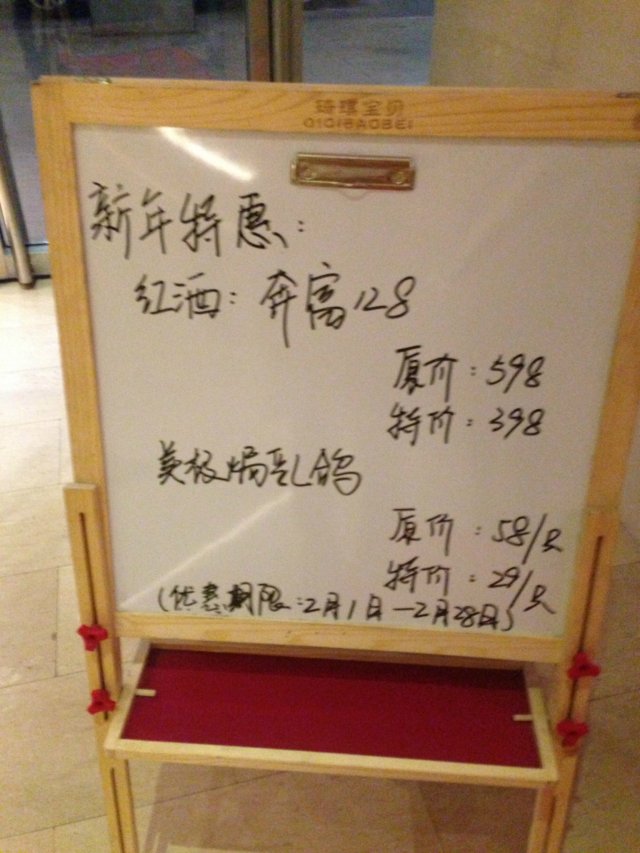 琦琪宝贝
QIQIBAOBEI
新年特惠：
红酒：奔富128
原价：598
特价：398
美极焗乳鸽
原价：58/只
特价：29/只
（优惠期限：2月1日—2月28日）